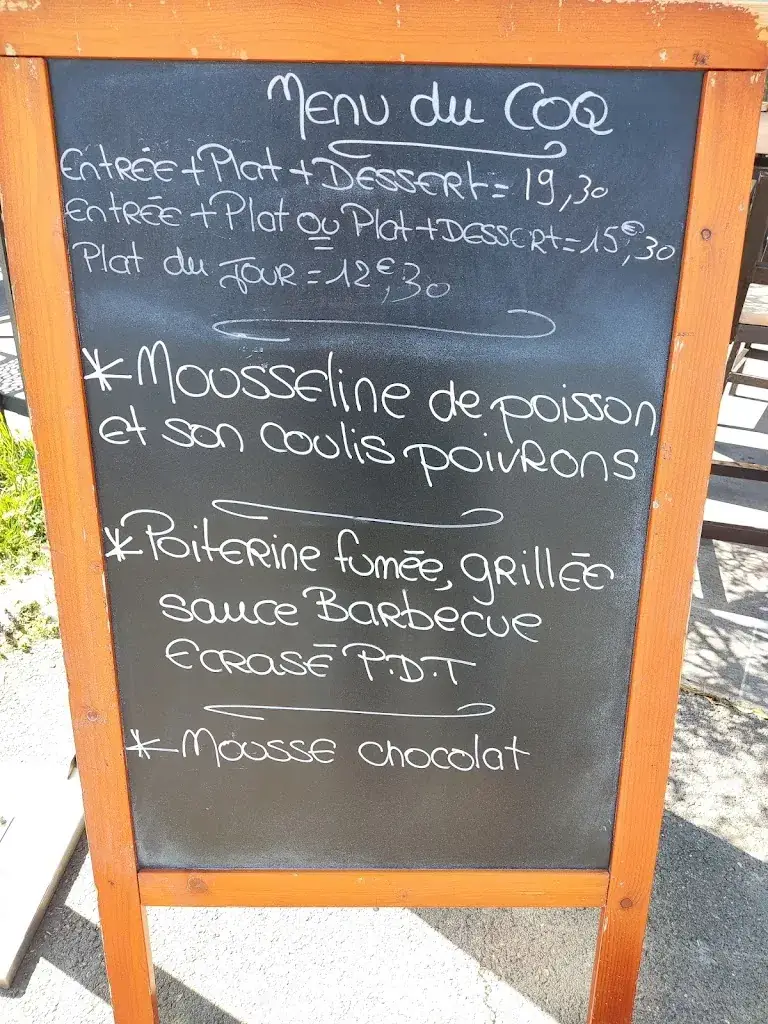 Menu du COQ
Entrée+Plat+Dessert=19,30
Entrée+Plat ou Plat+Dessert=15€,30
Plat du Jour=12€,30
*Mousseline de poisson
et son coulis poivrons
*Poiterine fumée, grillée
sauce Barbecue
Ecrasé P.D.T
*Mousse chocolat